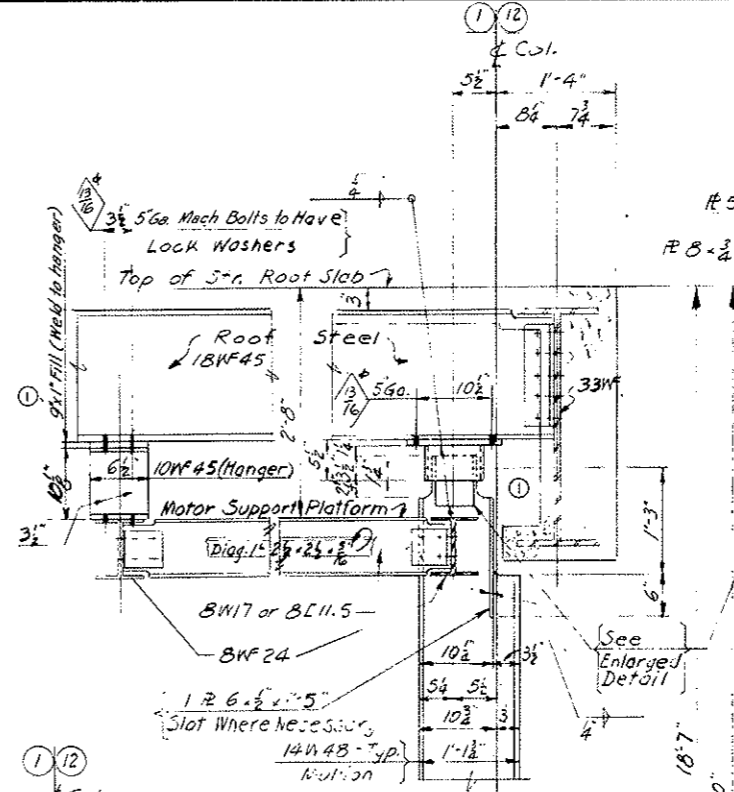 1 12
℄ Col.
5½" 1'-4"
8¼" 7¾"
¼
13/16 3½" 5"Ga. Mach Bolts to Have
Lock Washers
℞ 5
℞ 8 x ¾
Top of Str. Roof Slab
3
9"x1" Fill (Weld to hanger)
Roof Steel
18WF45
13/16 5"Ga. 10½"
33WF
1
2'-8"
5½"
1¼
3½
2¼
1¼"
10⅛"
6½" 10WF45(Hanger)
1
3½"
Motor Support Platform
1'-3"
Diag. 1L 2½ x 2½ x 5/16
6"
8W17 or 8[11.5
8WF24
10¼" 3½"
See
Enlarged
Detail
1 ℞ 6 x ½ x 1'-5"
Slot Where Necessary
5¼ 5½"
10¾" 3
¼"
14W48 - Typ.
Mullion
1'-1¾"
18'-7"
1 12
℄ Col.